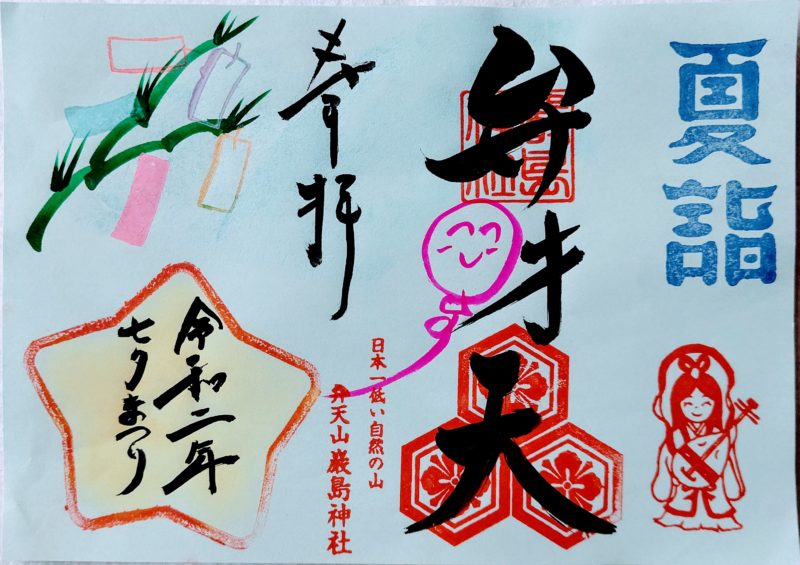 夏詣
弁才天
奉拝
日本一低い自然の山
弁天山 厳島神社
令和二年
七夕まつり